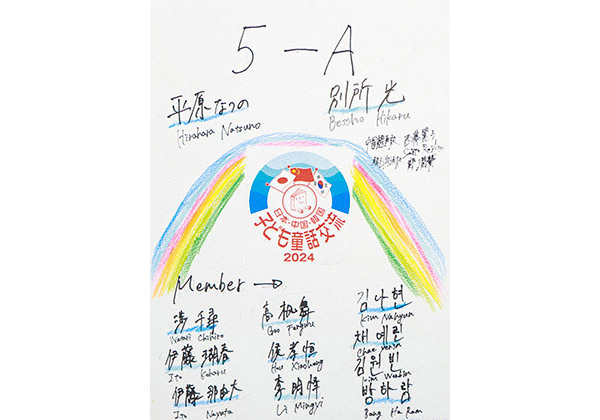 5-A
平原なつの
Hirahara Natsuno
別所 光
Bessho Hikaru
日本・中国・韓国
子ども童話交流
2024
Member →
Chihiro
伊藤
Ito Koharu
伊藤
Ito Nayuta
高帆舞
Gao Fanwu
侯孝恒
Hou Xiaoheng
李明
Li Mingyi
김나현
Kim Nahyun
채예린
Chae Yerin
김원빈
Kim Wonbin
방하람
Bang Ha Ram